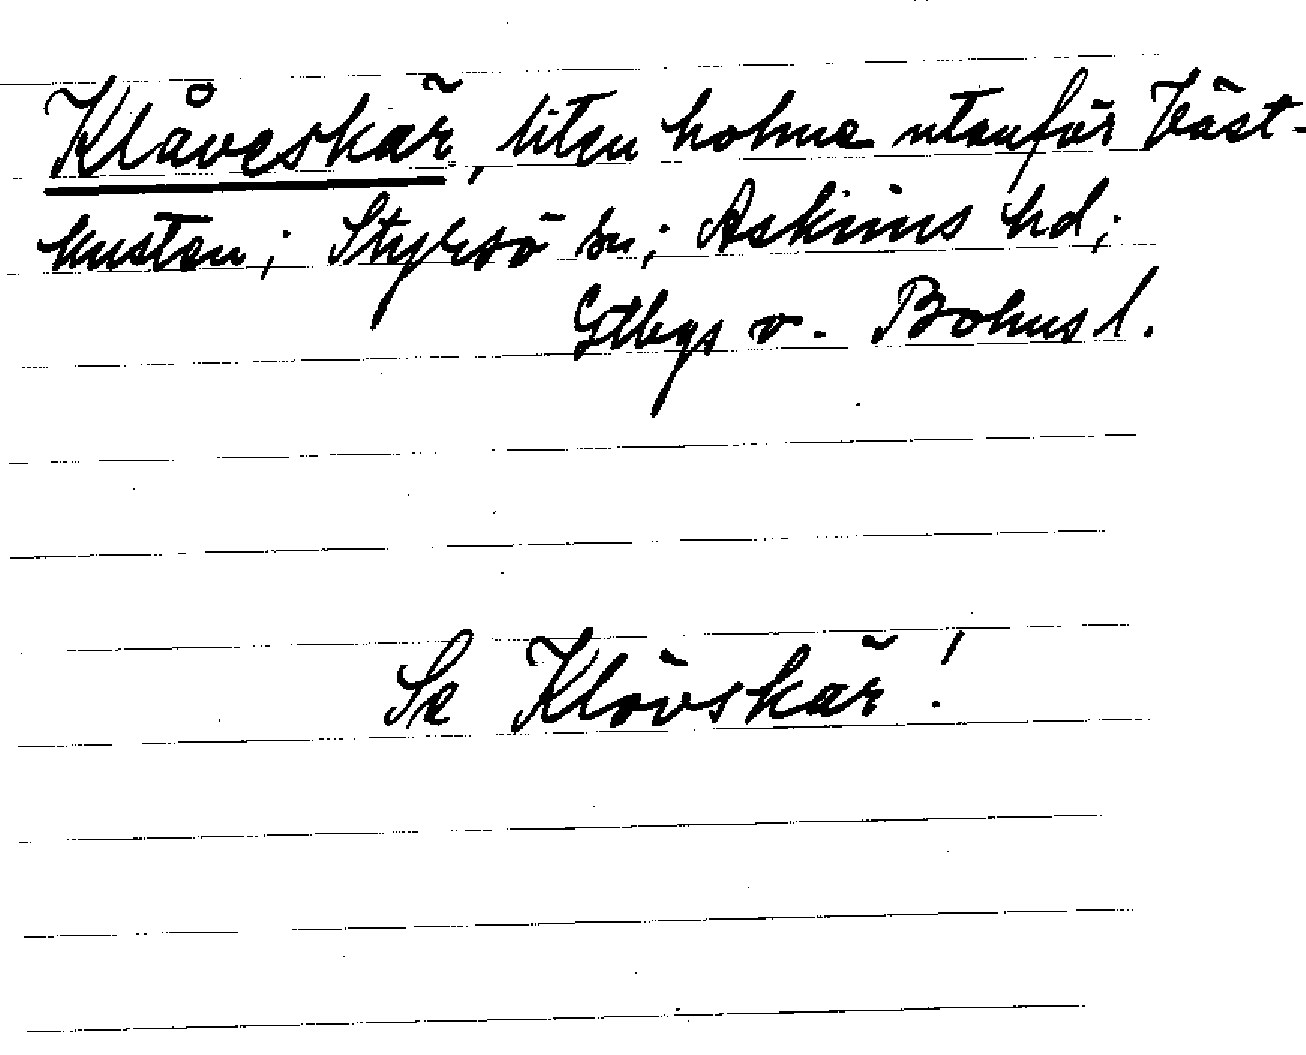 Klåveskär, liten holme utanför Väst-
kusten; Styrsö sn; Askims hd;
Gtbgs o. Bohus l.
Se Klövskär!